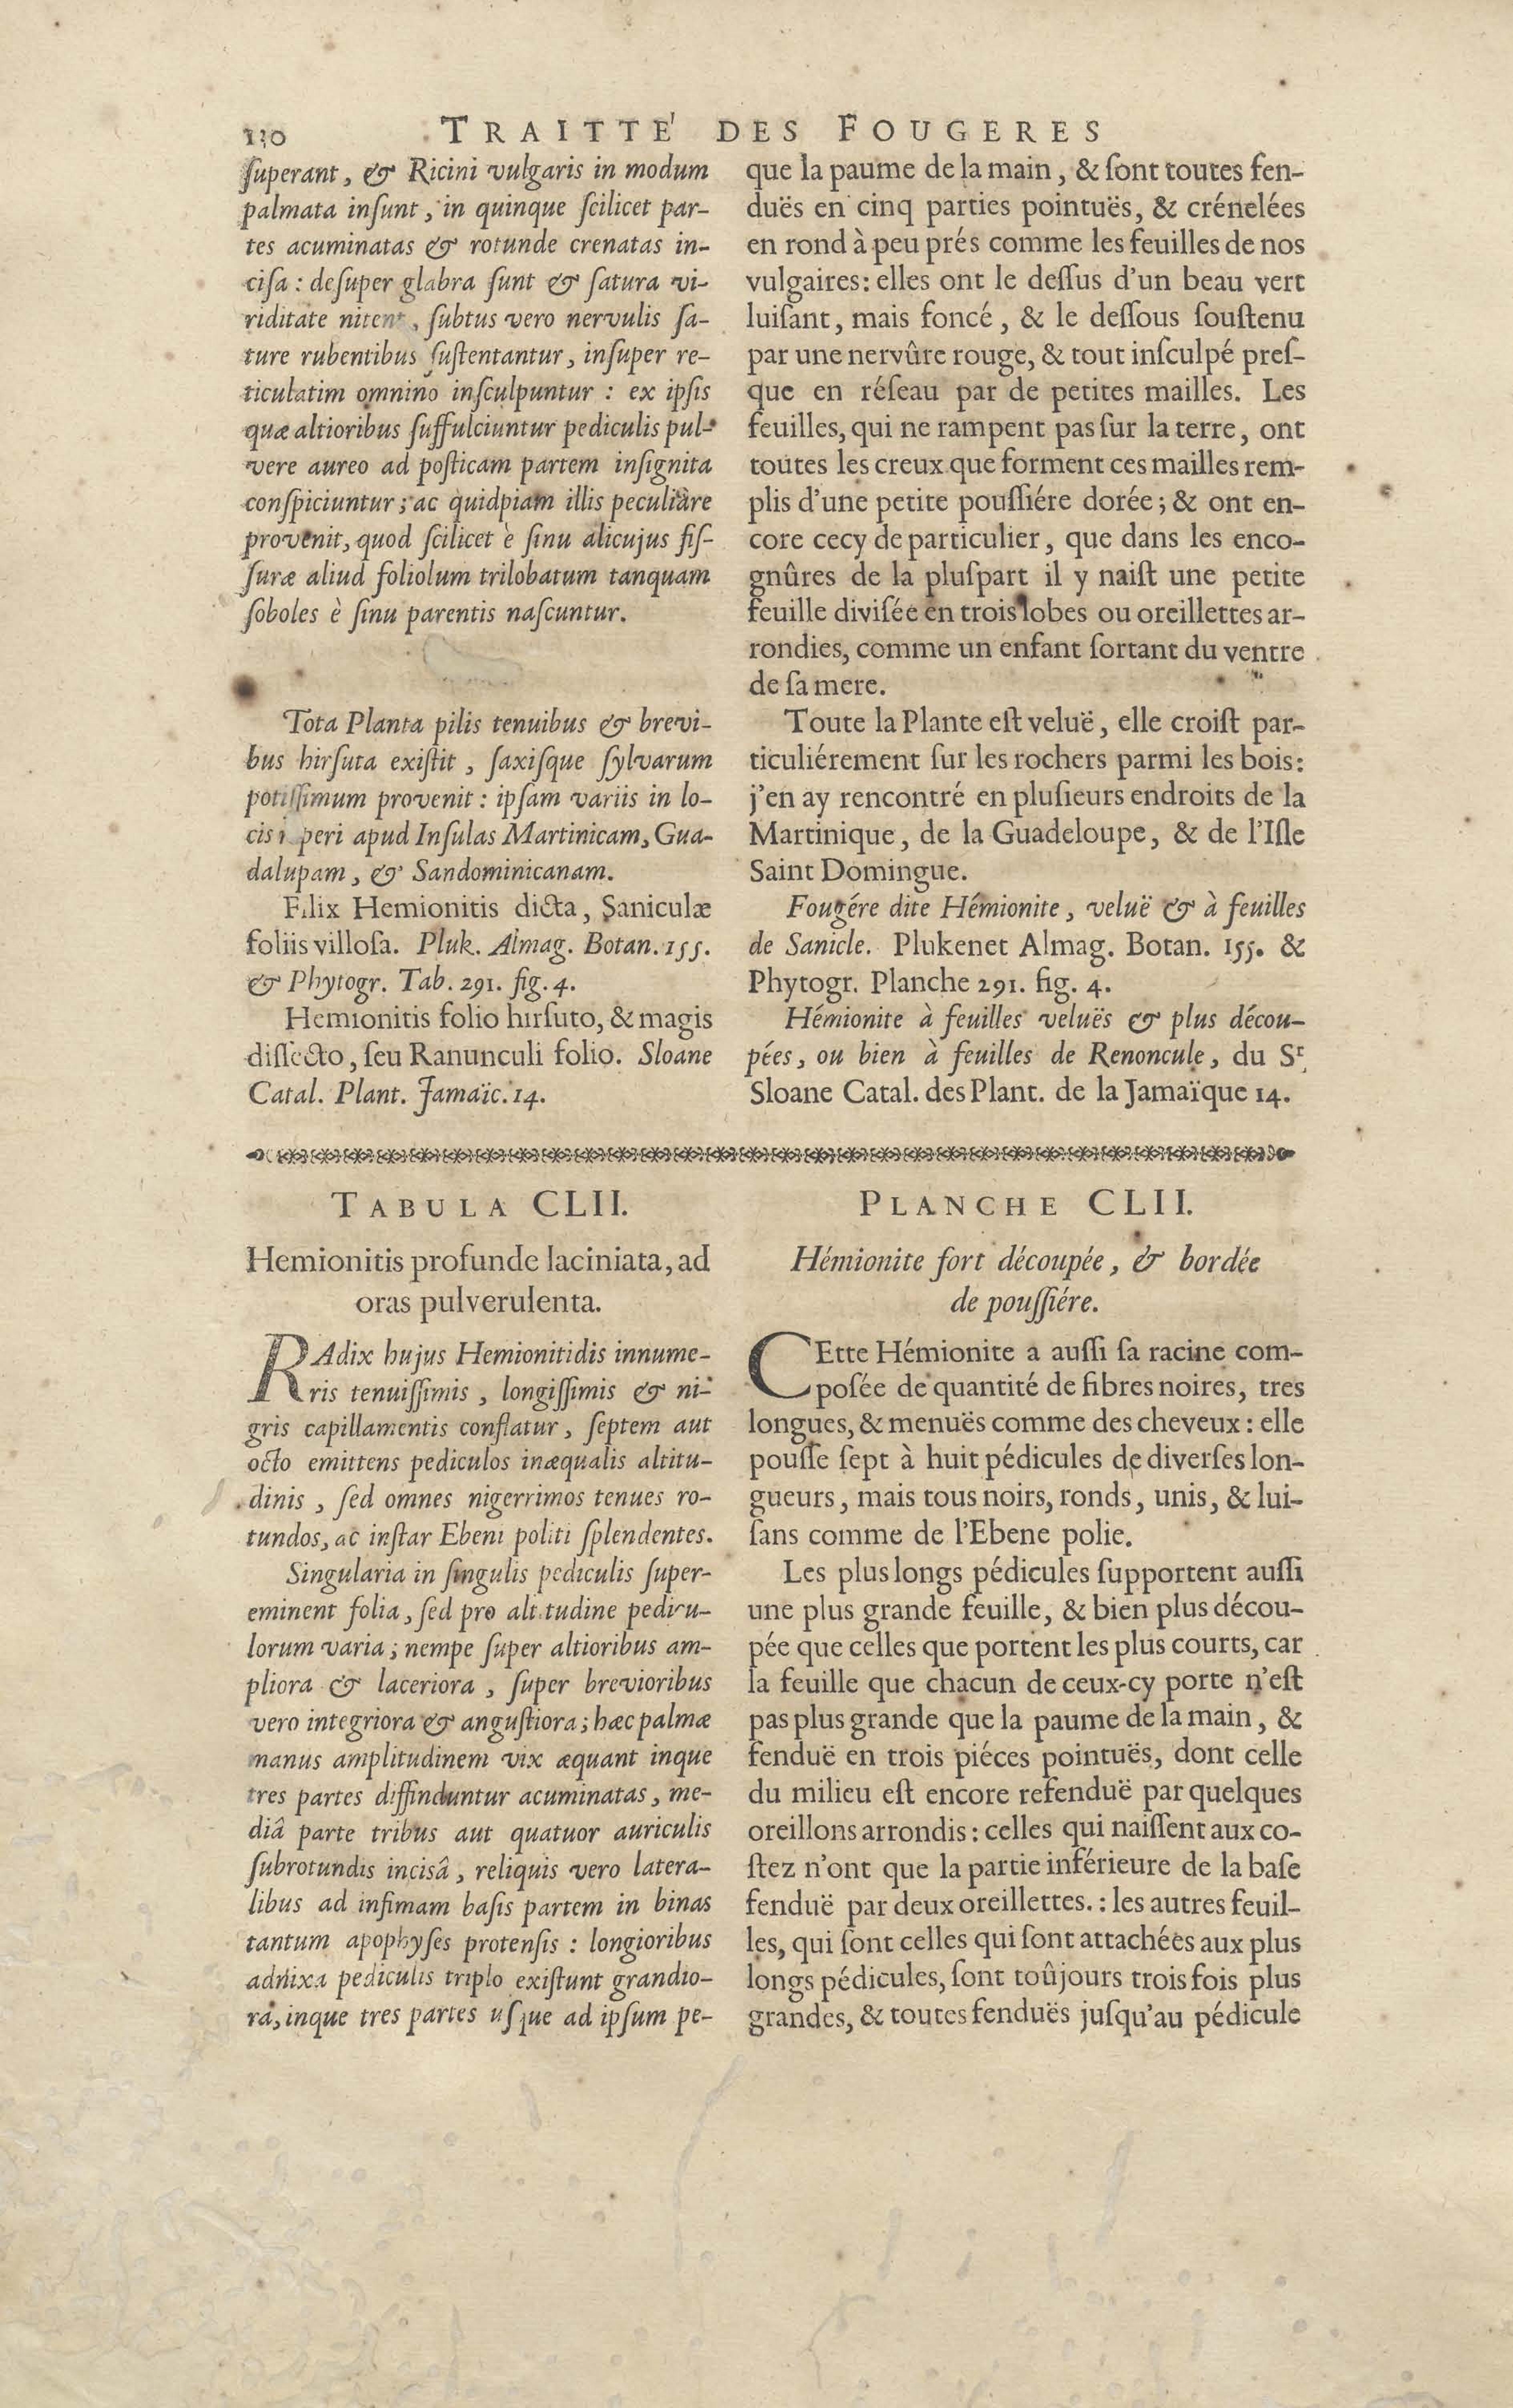 130 TRAITTE' DES FOUGERES
ſuperant, & Ricini vulgaris in modum
palmata inſunt, in quinque ſcilicet par-
tes acuminatas & rotunde crenatas in-
ciſa: deſuper glabra ſunt & ſatura vi-
riditate nitent, ſubtus vero nervulis ſa-
ture rubentibus ſuſtentantur, inſuper re-
ticulatim omnino inſculpuntur: ex ipſis
quæ altioribus ſuffulciuntur pediculis pul-
vere aureo ad poſticam partem inſignita
conſpiciuntur; ac quidpiam illis peculiare
provenit, quod ſcilicet è ſinu alicujus fiſ-
ſuræ aliud foliolum trilobatum tanquam
ſoboles è ſinu parentis naſcuntur.
Tota Planta pilis tenuibus & brevi-
bus hirſuta exiſtit, ſaxiſque ſylvarum
potiſſimum provenit: ipſam variis in lo-
cis peri apud Inſulas Martinicam, Gua-
dalupam, & Sandominicanam.
Filix Hemionitis dicta, Saniculæ
foliis villoſa. Pluk. Almag. Botan. 155.
& Phytogr. Tab. 291. fig. 4.
Hemionitis folio hirſuto, & magis
diſſecto, ſeu Ranunculi folio. Sloane
Catal. Plant. Jamaïc. 14.
que la paume de la main, & ſont toutes fen-
duës en cinq parties pointuës, & crénelées
en rond à peu prés comme les feuilles de nos
vulgaires: elles ont le deſſus d'un beau vert
luiſant, mais foncé, & le deſſous ſouſtenu
par une nervûre rouge, & tout inſculpé preſ-
que en réſeau par de petites mailles. Les
feuilles, qui ne rampent pas ſur la terre, ont
toutes les creux que forment ces mailles rem-
plis d'une petite pouſſiére dorée; & ont en-
core cecy de particulier, que dans les enco-
gnûres de la pluſpart il y naiſt une petite
feuille diviſée en trois lobes ou oreillettes ar-
rondies, comme un enfant ſortant du ventre
de ſa mere.
Toute la Plante eſt veluë, elle croiſt par-
ticuliérement ſur les rochers parmi les bois:
j'en ay rencontré en pluſieurs endroits de la
Martinique, de la Guadeloupe, & de l'Iſle
Saint Domingue.
Fougére dite Hémionite, veluë & à feuilles
de Sanicle. Plukenet Almag. Botan. 155. &
Phytogr. Planche 291. fig. 4.
Hémionite à feuilles veluës & plus décou-
pées, ou bien à feuilles de Renoncule, du Sr
Sloane Catal. des Plant. de la Jamaïque 14.
TABULA CLII.
Hemionitis profunde laciniata, ad
oras pulverulenta.
RAdix hujus Hemionitidis innume-
ris tenuiſſimis, longiſſimis & ni-
gris capillamentis conflatur, ſeptem aut
octo emittens pediculos inæqualis altitu-
dinis, ſed omnes nigerrimos tenues ro-
tundos, ac inſtar Ebeni politi ſplendentes.
Singularia in ſingulis pediculis ſuper-
eminent folia, ſed pro altitudine pedicu-
lorum varia; nempe ſuper altioribus am-
pliora & laceriora, ſuper brevioribus
vero integriora & anguſtiora; hæc palmæ
manus amplitudinem vix æquant inque
tres partes diffinduntur acuminatas, me-
diâ parte tribus aut quatuor auriculis
ſubrotundis inciſâ, reliquis vero latera-
libus ad infimam baſis partem in binas
tantum apophyſes protenſis: longioribus
adnixa pediculis triplo exiſtunt grandio-
ra, inque tres partes uſque ad ipſum pe-
PLANCHE CLII.
Hémionite fort découpée, & bordée
de pouſſiére.
CEtte Hémionite a auſſi ſa racine com-
poſée de quantité de fibres noires, tres
longues, & menuës comme des cheveux: elle
pouſſe ſept à huit pédicules de diverſes lon-
gueurs, mais tous noirs, ronds, unis, & lui-
ſans comme de l'Ebene polie.
Les plus longs pédicules ſupportent auſſi
une plus grande feuille, & bien plus décou-
pée que celles que portent les plus courts, car
la feuille que chacun de ceux-cy porte n'eſt
pas plus grande que la paume de la main, &
fenduë en trois piéces pointuës, dont celle
du milieu eſt encore refenduë par quelques
oreillons arrondis: celles qui naiſſent aux co-
ſtez n'ont que la partie inférieure de la baſe
fenduë par deux oreillettes.: les autres feuil-
les, qui ſont celles qui ſont attachées aux plus
longs pédicules, ſont toûjours trois fois plus
grandes, & toutes fenduës juſqu'au pédicule